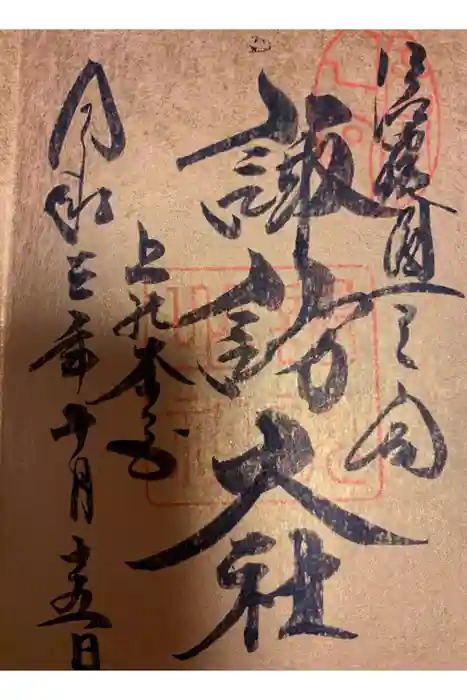 信濃國一之宮
諏訪大社
上社本宮
令和三年十月十五日